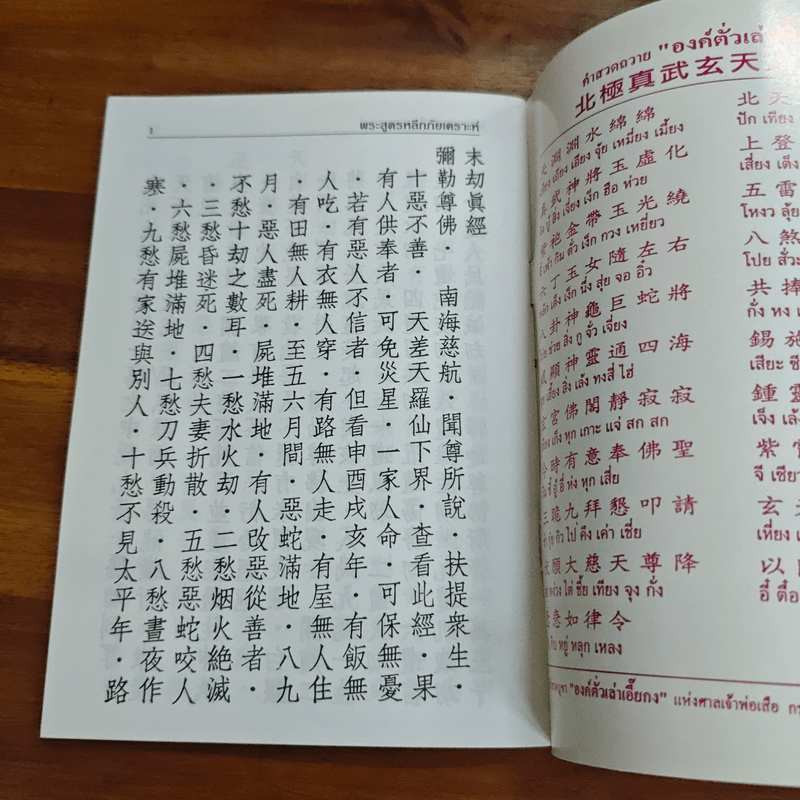 1
พระสูตรหลีกภัยเคราะห์
末劫眞經
彌勒尊佛．南海慈航．聞尊所說．扶提衆生．
十惡不善．天差天羅仙下界．查看此經．果
有人供奉者．可免災星．一家人命．可保無憂
．若有惡人不信者．但看申酉戌亥年．有飯無
人吃．有衣無人穿．有路無人走．有屋無人住
．有田無人耕．至五六月間．惡蛇滿地．八九
月．惡人盡死．屍堆滿地．有人改惡從善者．
不愁十劫之數耳．一愁水火劫．二愁烟火絶滅
．三愁昏迷死．四愁夫妻折散．五愁惡蛇咬人
．六愁屍堆滿地．七愁刀兵動殺．八愁晝夜作
寒．九愁有家送與別人．十愁不見太平年．路
คำสวดถวาย "องค์ตั่วเล่า
北極真武玄天
淵淵水綿綿 北天
เอียง เอียง จุ้ย เหมี่ยง เมี้ยง ปัก เทียง
武神將玉虛化 上登
บู๊ สิ่ง เจี่ยง เง็ก ฮือ ห่วย เสี่ยง เต็ง
袍金帶玉光繞 五雷
กิม ตั่ว เง็ก กวง เหยี่ยว โหงว ลุ้ย
丁玉女隨左右 八煞
เต็ง เง็ก นึ่ง สุ่ย จอ อิ๋ว โปย สั่วะ
八卦神龜巨蛇將 共捧
ข่วย สิ่ง กู จั่ว เจี่ยง กั่ง ทง
顯神靈通四海 錫施
เฮี้ยง สิ่ง เล้ง ทงสี่ ไฮ่ เสียะ ซี
宮佛閣靜寂寂 鍾靈
เก็ง ฮุก เกาะ แจ่ สก สก เจ็ง เล้ง
時有意奉佛聖 紫
ซี้ อู๋ อี่ ห่ง ฮุก เสี่ย จี เซียว
三跪九拜懇叩請 玄
กุ่ย กิว ไป่ คึง เค่า เชี่ย เหี่ยง เ
大願大慈天尊降 以
หง่วง ไต่ ชี้ย เทียง จุง กั่ง อี๋ ตื้อ
急如律令
หยู่ หลุก เหลง
"องค์ตั่วเล่าเอี๊ยกง" แห่งศาลเจ้าพ่อเสือ กร